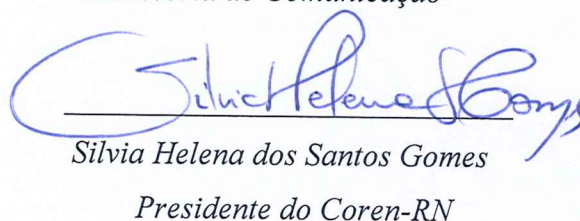 de Comunicação
Silvia Helena S Gomes
Silvia Helena dos Santos Gomes
Presidente do Coren-RN